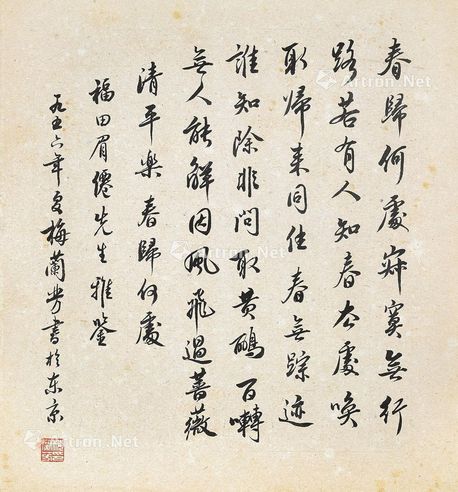 春歸何處寂寞無行
路若有人知春去處喚
取歸來同住春無踪迹
誰知除非問取黄鸝百囀
無人能解因風飛過薔薇
清平樂 春歸何處
福田眉僊先生雅鑒
一九五六年夏梅蘭芳書於东京
Artron.Net
Artron.Net
Artron.Net
Artron.Net